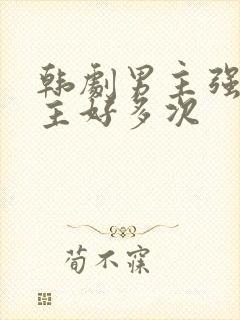 韩剧男主强
主好多次
荀不寐